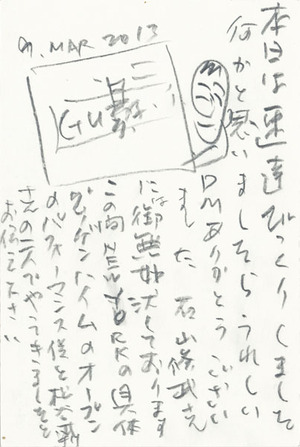 本日は速達びっくりしました
何かと思いましたらうれしい
DMありがとうござい
ました 石山修武さん
には御無沙汰しております
この間NEW YORKの具体
グッゲンハイムのオープン
のパフォーマンス僕と松本
さんの二人でやってきましたと
お伝え下さい
MAR 2013
GU